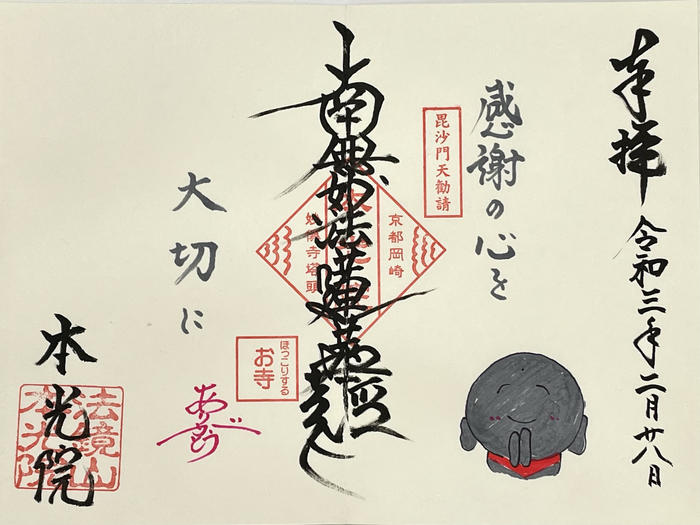 奉拝
令和三年二月廿八日
感謝の心を
毘沙門天勧請
京都岡崎
南無妙法蓮華経
妙傳寺塔頭
ほっこりする
お寺
大切に
本光院
法鏡山
本光院